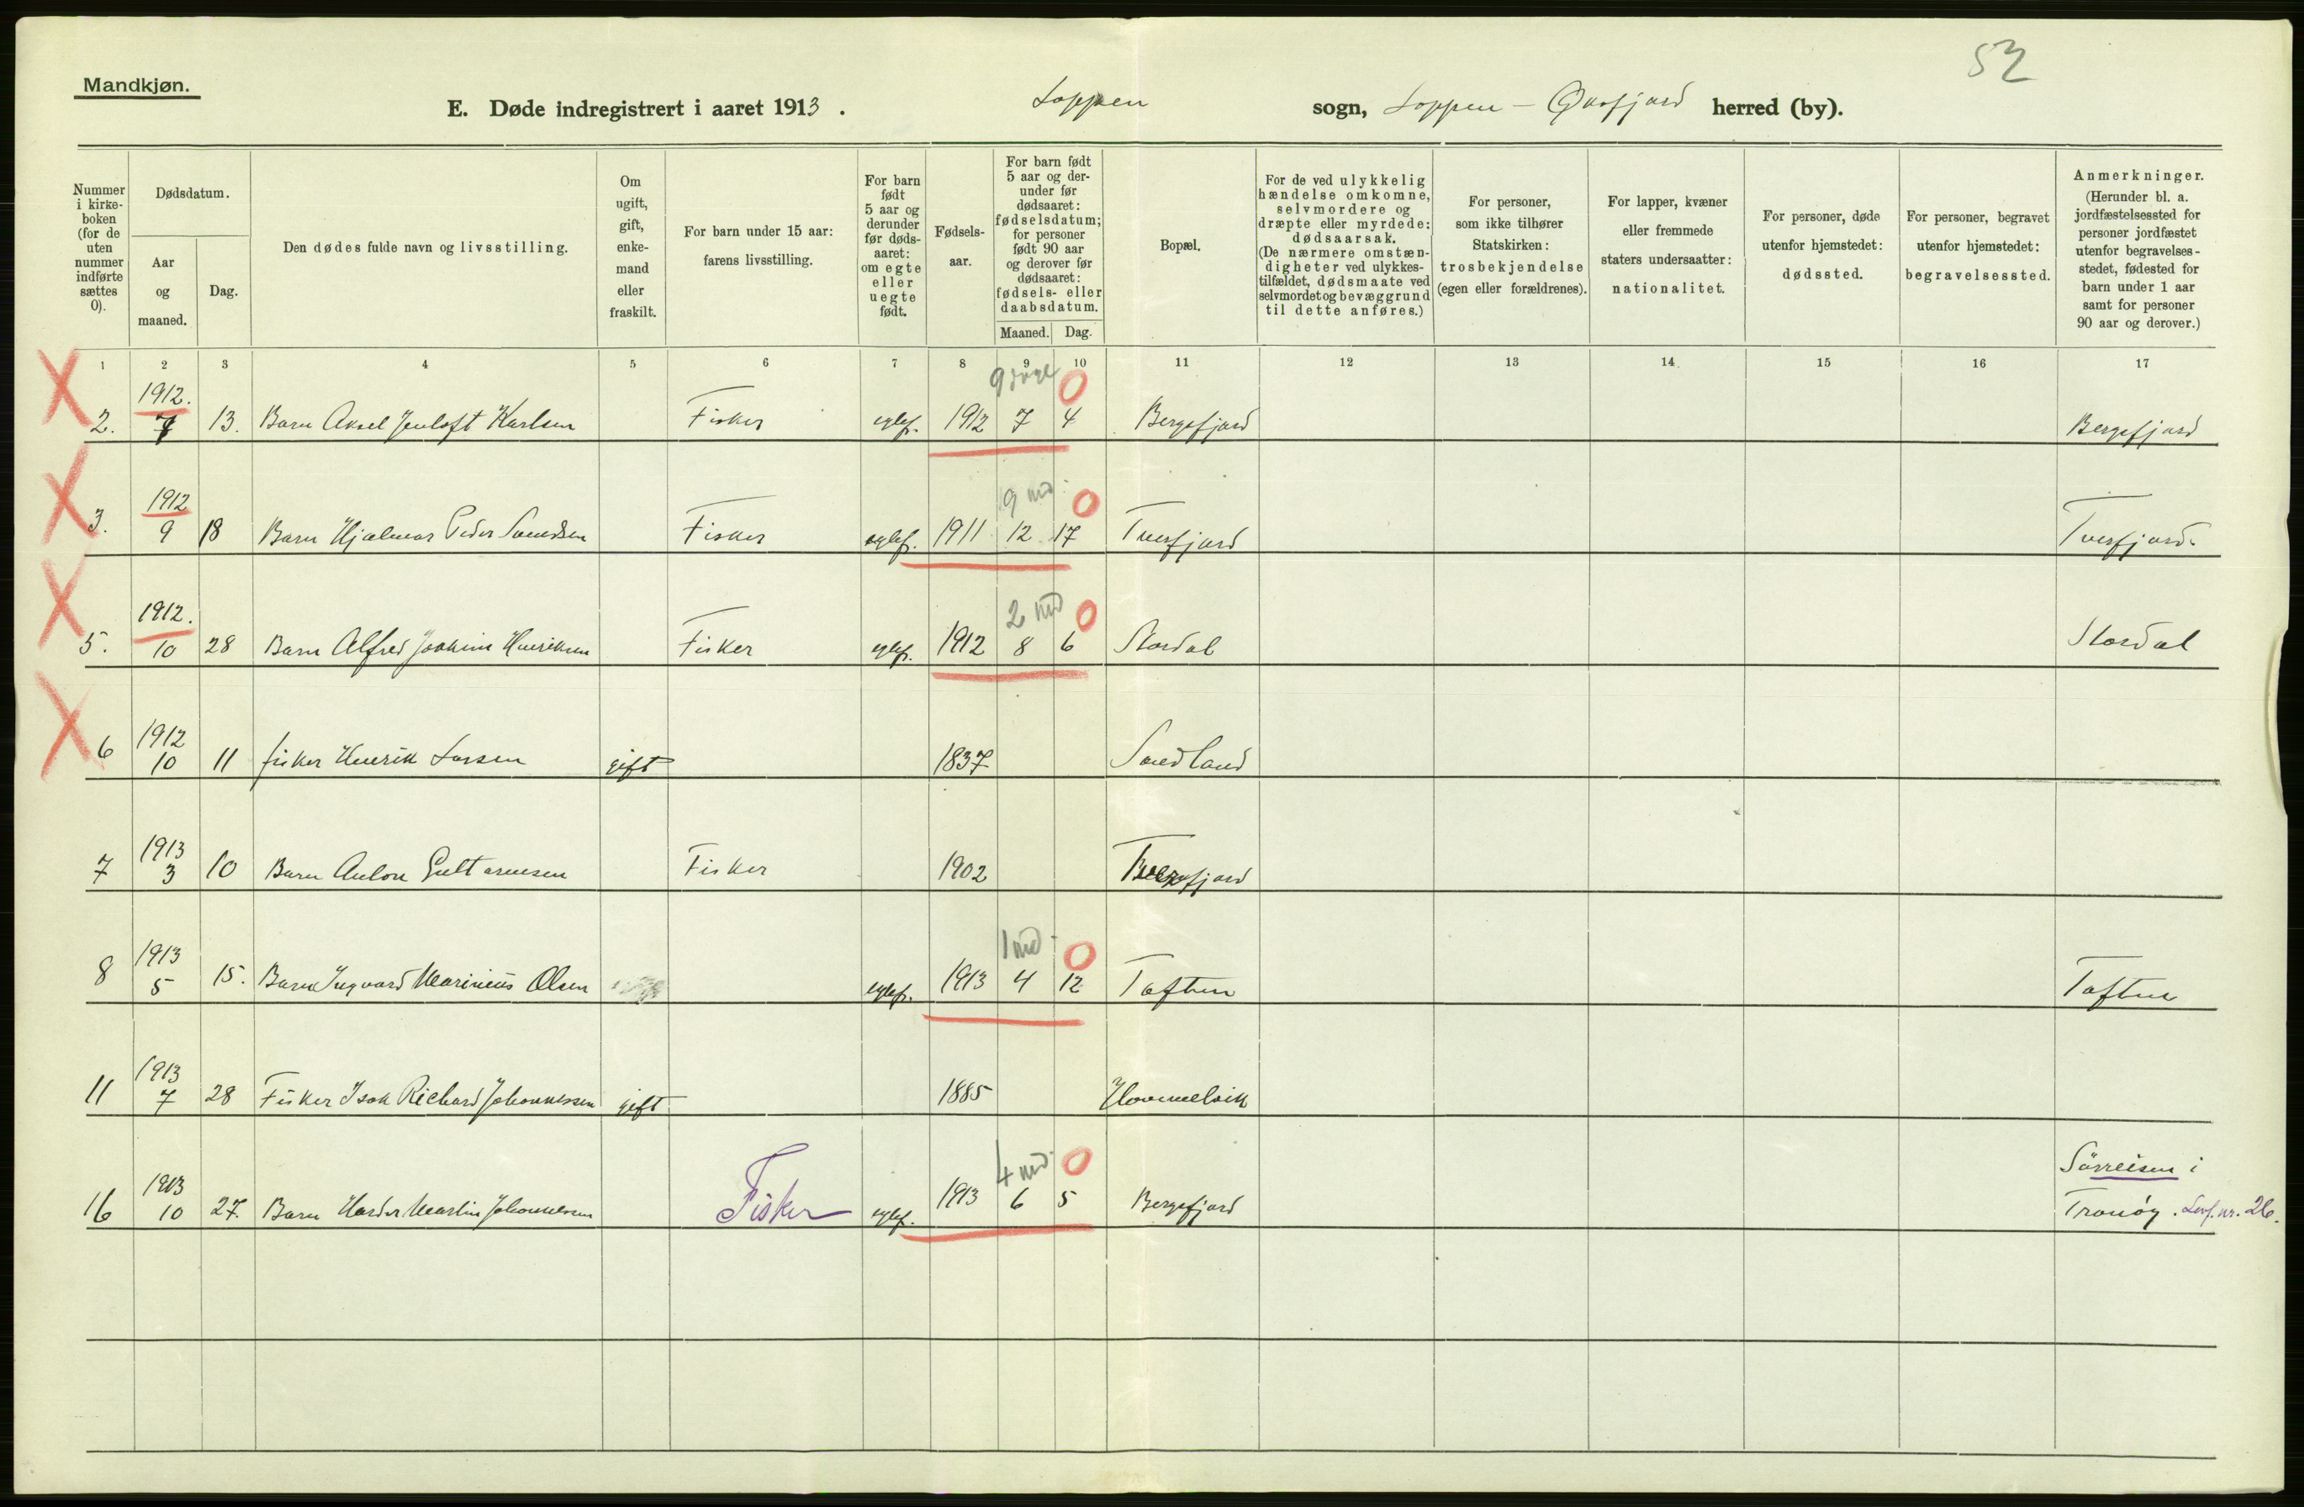 52
Mandkjøn.
E. Døde indregistrert i aaret 1913. Loppen sogn, Loppen - Øksfjord herred (by).
Nummer i kirkeboken (for de uten nummer indførte sættes 0).
Dødsdatum.
Aar og maaned.
Dag.
Den dødes fulde navn og livsstilling.
Om ugift, gift, enkemand eller fraskilt.
For barn under 15 aar: farens livsstilling.
For barn født 5 aar og derunder før dødsaaret: om egte eller uegte født.
Fødselsaar.
For barn født 5 aar og derunder før dødsaaret: fødselsdatum; for personer født 90 aar og derover før dødsaaret: fødsels- eller daabsdatum.
Maaned. Dag.
Bopæl.
For de ved ulykkelig hændelse omkomne, selvmordere og dræpte eller myrdede: dødsaarsak. (De nærmere omstændigheter ved ulykkestilfældet, dødsmaate ved selvmordet og bevæggrund til dette anføres.)
For personer, som ikke tilhører Statskirken: trosbekjendelse (egen eller forældrenes).
For lapper, kvæner eller fremmede staters undersaatter: nationalitet.
For personer, døde utenfor hjemstedet: dødssted.
For personer, begravet utenfor hjemstedet: begravelsessted.
Anmerkninger. (Herunder bl. a. jordfæstelsessted for personer jordfæstet utenfor begravelsesstedet, fødested for barn under 1 aar samt for personer 90 aar og derover.)
1 2 3 4 5 6 7 8 9 10 11 12 13 14 15 16 17
9 dage 0
2. 1912. 7 13. Barn Aksel Karlsen Fisker egtef. 1912 7 4 Bergsfjord Bergsfjord
9 md. 0
3. 1912 9 18 Barn Hjalmar Peder Fisker egtef. 1911 12 17 Tverfjord Tverfjord.
2 md 0
5. 1912. 10 28 Barn Alfred Joakim Henriksen Fisker egtef. 1912 8 6 Stordal Stordal
6 1912 10 11 fisker Henrik Larsen gift 1837 Sandland
7 1913 3 10 Barn Anton Fisker 1902
1 md. 0
8 1913 5 15. Barn Ingvard Marinius Olsen egtef. 1913 4 12 Toften Toften
11 1913 7 28 Fisker Isak Richard Johannessen gift 1885
4 md. 0
16 1913 10 27. Barn Harder Martin Johannesen Fisker egtef. 1913 6 5 Bergsfjord Sörreisen i
Tranöy. Levf. nr. 26.